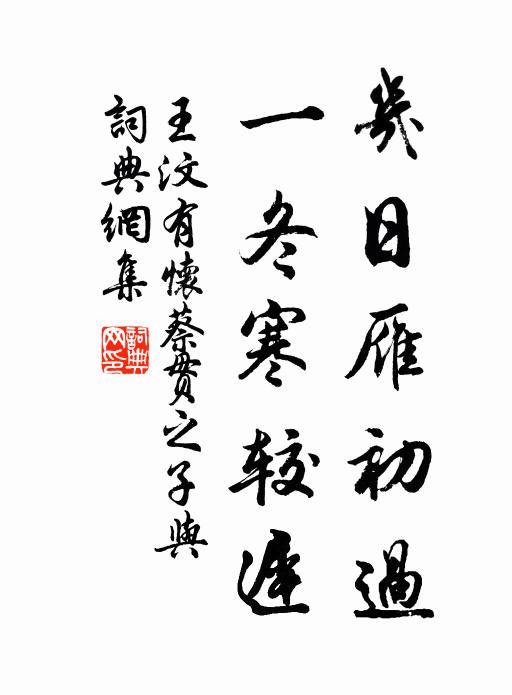 幾日雁初過
一冬寒較遲
王汶有懷蔡貫之子與
詞典網集
詞典網印